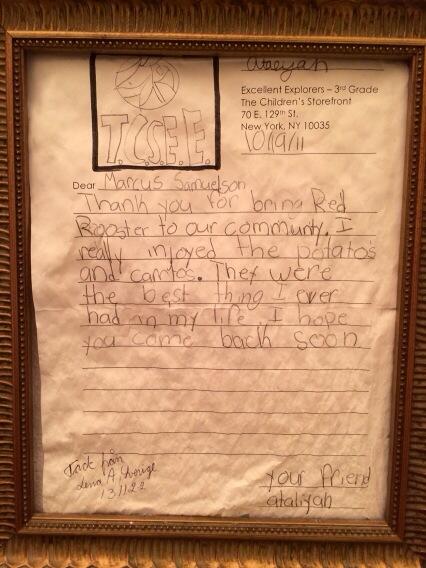 Excellent Explorers – 3rd Grade
The Children's Storefront
70 E. 129th St.
New York, NY 10035
10/19/11
T.C.S.E.E.
Dear Marcus Samuelson
Thank you for bring Red
Rooster to our communty. I
really injoyed the potatos
and carrtos. They were
the best thing I ever
had in my life I hope
you come back soon
your friend
ataliyah
Tack från
13/1122